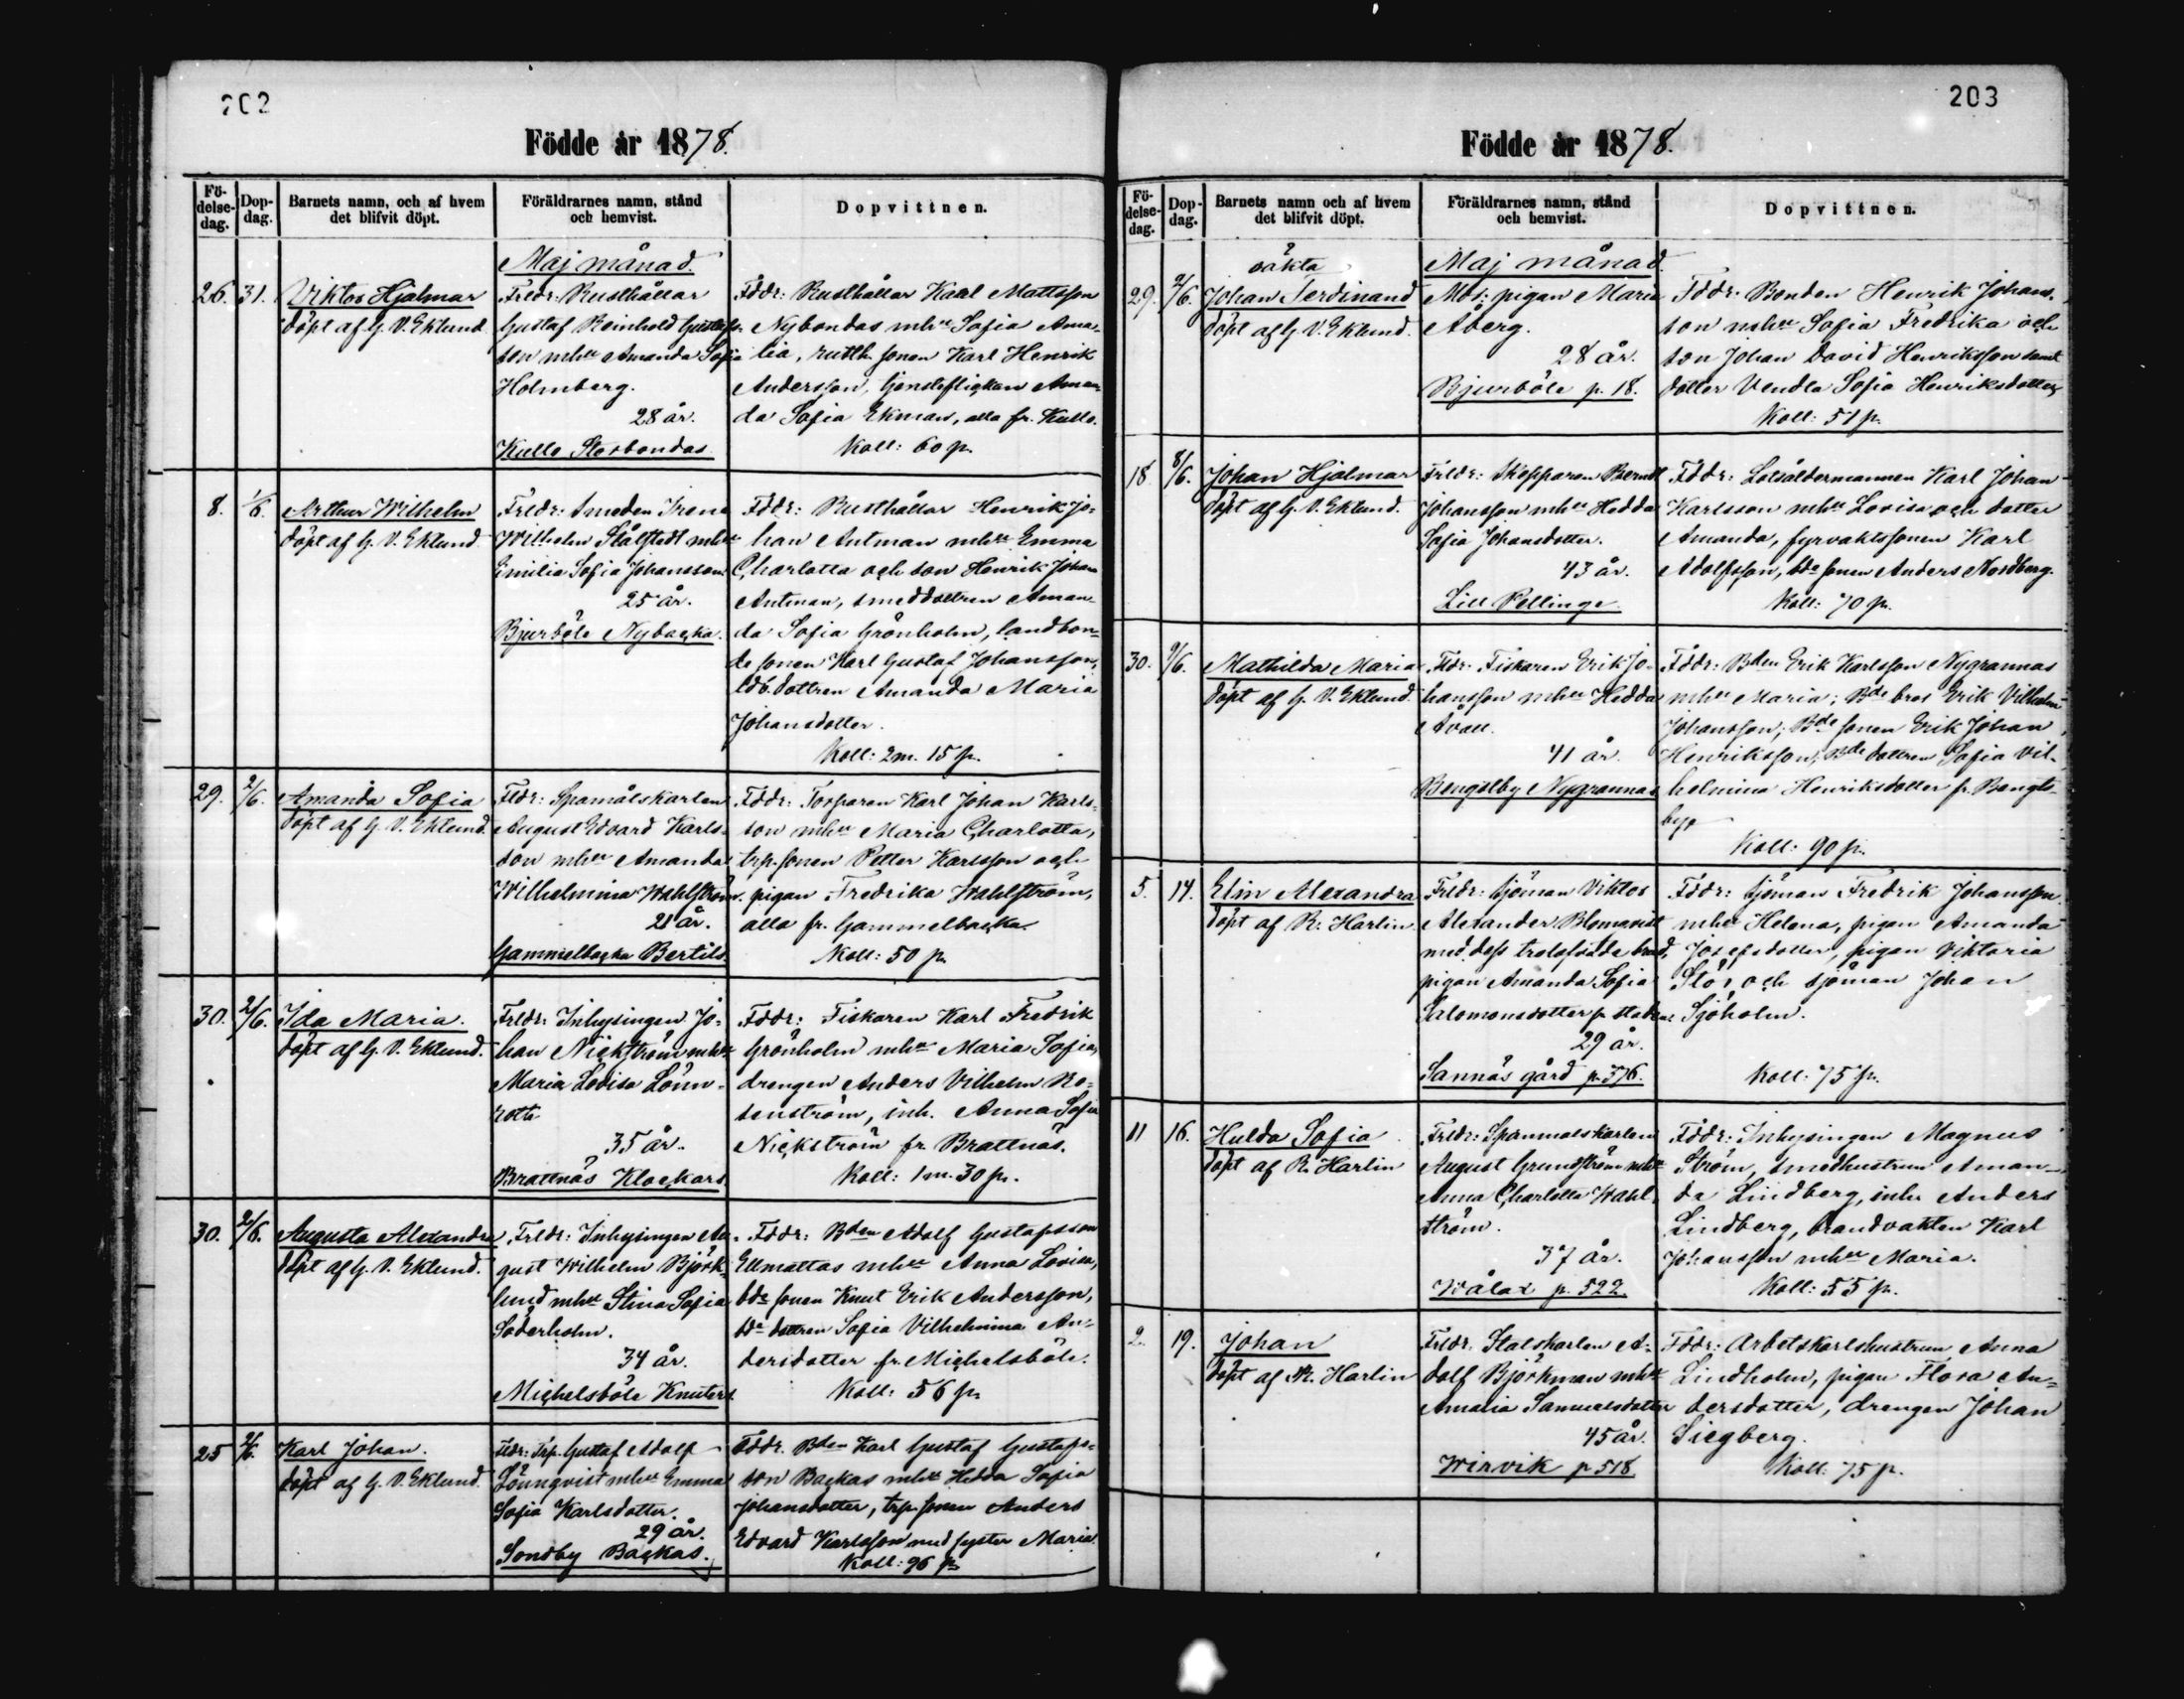 202
Födde år 1878.
Fö-
delse-
dag.
Dop-
dag.
Barnets namn, och af hvem
det blifvit döpt.
Föräldrarnes namn, stånd
och hemvist.
Dopvittnen.
Maj månad.
26. 31.
Viktor Hjalmar
döpt af G. V. Eklund.
Frldr: Rusthållar
Gustaf Reinhold Gustafs-
son mhu Amanda Sofia
Holmberg.
28 år.
Kullo Storbondas
Fddr: Rusthållar Karl Mattsson
Nybondas mhu Sofia Ama-
lia, rusth. sonen Karl Henrik
Andersson, tjensteflickan Aman-
da Sofia Ekman, alla fr. Kullo.
Koll: 60 p.
8. 1/6.
Arthur Wilhelm
döpt af G. V. Eklund.
Frldr: smeden Irene
Wilhelm Stålstedt mhu
Emilia Sofia Johansson
25 år.
Bjurböle Nybacka.
Fddr: Rusthållar Henrik Jo-
han Antman mhu Emma
Charlotta och son Henrik Johan
Antman, smeddottren Aman-
da Sofia Grönholm, landbon-
de sonen Karl Gustaf Johansson,
ldb. dottren Amanda Maria
Johansdotter.
Koll: 2 m. 15 p.
29. 2/6.
Amanda Sofia
döpt af G. V. Eklund.
Fldr: Spamålskarlen
August Edvard Karls-
son mhu Amanda
Wilhelmina Wahlström.
21 år.
Gammelbacka Bertils
Fddr: Torparen Karl Johan Karls-
son mhu Maria Charlotta,
trp. sonen Petter Karlsson och
pigan Fredrika Wahlström,
alla fr. Gammelbacka.
Koll: 50 p.
30. 2/6.
Ida Maria.
döpt af G. V. Eklund.
Frldr: Inhysingen Jo-
han Nickström mhu
Maria Lovisa Lönn-
rott
35 år.
Brattnäs Klockars
Fddr: Fiskaren Karl Fredrik
Grönholm mhu Maria Sofia,
drengen Anders Vilhelm Ro-
senström, inh. Anna Sofia
Nickström fr. Brattnäs.
Koll: 1 m. 30 p.
30. 2/6.
Augusta Alexandra
döpt af G. V. Eklund.
Frldr: Inhysingen Au-
gust Wilhelm Björk-
lund mhu Stina Sofia
Söderholm.
34 år.
Michelsböle Knuters
Fddr: Bden Adolf Gustafsson
Ellmattas mhu Anna Lovisa,
bde sonen Knut Erik Andersson,
bde dottren Sofia Vilhelmina An-
dersdotter fr. Michelsböle.
Koll: 56 p.
25 2/6.
Karl Johan.
döpt af G. V. Eklund.
Fldr: Trp. Gustaf Adolf
Lönnqvist mhu Emma
Sofia Karlsdotter.
29 år.
Sondby Backas.
Fddr. Bden Karl Gustaf Gustafs-
son Backas mhu Hedda Sofia
Johansdotter, trp. sonen Anders
Edvard Karlsson med syster Maria.
Koll: 96 p.
203
Födde år 1878.
Fö-
delse-
dag.
Dop-
dag.
Barnets namn och af hvem
det blifvit döpt.
Föräldrarnes namn, stånd
och hemvist.
Dopvittnen.
Maj månad.
29. 2/6.
oäkta
Johan Ferdinand
döpt af G. V. Eklund.
Mdr: pigan Maria
Åberg.
28 år.
Bjurböle p. 18.
Fddr. Bonden Henrik Johans-
son mhu Sofia Fredrika och
son Johan David Henriksson samt
dotter Vendla Sofia Henriksdotter,
Koll: 51 p.
18. 8/6.
Johan Hjalmar
döpt af G. V. Eklund.
Frldr: Skepparen Berndt
Johansson mhu Hedda
Sofia Johansdotter.
43 år.
Lill Pellinge
Fddr: Lotsåldermannen Karl Johan
Karlsson mhu Lovisa och dotter
Amanda, fyrvaktssonen Karl
Adolfsson, bde sonen Anders Nordberg.
Koll: 70 p.
30. 9/6.
Mathilda Maria
döpt af G. V. Eklund.
Fldr. Fiskaren Erik Jo-
hansson mhu Hedda
41 år.
Bengtsby Nygrannas
Fddr: Bden Erik Karlsson Nygrannas
mhu Maria; Bde bror Erik Vilhelm
Johansson, Bde sonen Erik Johan
Henriksson, Bde dottren Sofia Vil-
helmina Henriksdotter fr. Bengts-
by.
Koll: 90 p.
5. 14.
Elin Alexandra
döpt af R. Harlin
Frldr: sjöman Viktor
Alexander Blomqvist
med dess trolofvade brud,
pigan Amanda Sofia
Salomonsdotter p.
29 år.
Sannäs gård p. 376.
Fddr: sjöman Fredrik Johansson
mhu Helena, pigan Amanda
Josefsdotter, pigan Viktoria
Slör, och sjöman Johan
Sjöholm.
Koll: 75 p.
11 16.
Hulda Sofia
döpt af R. Harlin
Frldr: Spanmålskarlen
August Grundström mhu
Anna Charlotta Wahl-
ström.
37 år.
Wålax p. 522.
Fddr: Inhysingen Magnus
Ström, smedhustrun Aman-
da Lindberg, inhs Anders
Lindberg, brandvakten Karl
Johansson mhu Maria.
Koll: 55 p.
2. 19.
Johan
döpt af R. Harlin
Frldr. Stalskarlen A-
dolf Björkman mhu
Amalia Samuelsdotter
45 år.
Wirvik p 518.
Fddr: Arbetskarlshustrun Anna
Lindholm, pigan Flora An-
dersdotter, drengen Johan
Siegberg.
Koll: 75 p.